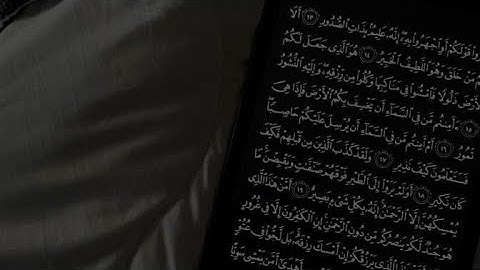 قَوْلَكُمْ أَوِ ٱجْهَرُوا۟ بِهِۦٓ إِنَّهُۥ عَلِيمٌۢ بِذَاتِ ٱلصُّدُورِ ١٣ أَلَا
مَنْ خَلَقَ وَهُوَ ٱللَّطِيفُ ٱلْخَبِيرُ ١٤ هُوَ ٱلَّذِى جَعَلَ لَكُمُ
ٱلْأَرْضَ ذَلُولًا فَٱمْشُوا۟ فِى مَنَاكِبِهَا وَكُلُوا۟ مِن رِّزْقِهِۦ وَإِلَيْهِ ٱلنُّشُورُ
١٥ ءَأَمِنتُم مَّن فِى ٱلسَّمَآءِ أَن يَخْسِفَ بِكُمُ ٱلْأَرْضَ فَإِذَا هِىَ
تَمُورُ ١٦ أَمْ أَمِنتُم مَّن فِى ٱلسَّمَآءِ أَن يُرْسِلَ عَلَيْكُمْ حَاصِبًا
فَسَتَعْلَمُونَ كَيْفَ نَذِيرِ ١٧ وَلَقَدْ كَذَّبَ ٱلَّذِينَ مِن قَبْلِهِمْ فَكَيْفَ
كَانَ نَكِيرِ ١٨ أَوَلَمْ يَرَوْا۟ إِلَى ٱلطَّيْرِ فَوْقَهُمْ صَٰٓفَّٰتٍ وَيَقْبِضْنَ مَا
يُمْسِكُهُنَّ إِلَّا ٱلرَّحْمَٰنُ إِنَّهُۥ بِكُلِّ شَىْءٍۭ بَصِيرٌ ١٩ أَمَّنْ هَٰذَا ٱلَّذِى
هُوَ جُندٌ لَّكُمْ يَنصُرُكُم مِّن دُونِ ٱلرَّحْمَٰنِ إِنِ ٱلْكَٰفِرُونَ إِلَّا فِى غُرُورٍ
هَٰذَا ٱلَّذِى يَرْزُقُكُمْ إِنْ أَمْسَكَ رِزْقَهُۥ بَل لَّجُّوا۟ فِى عُتُوٍّ
أَهْدَىٰٓ أَمَّن يَمْشِى سَوِيًّا